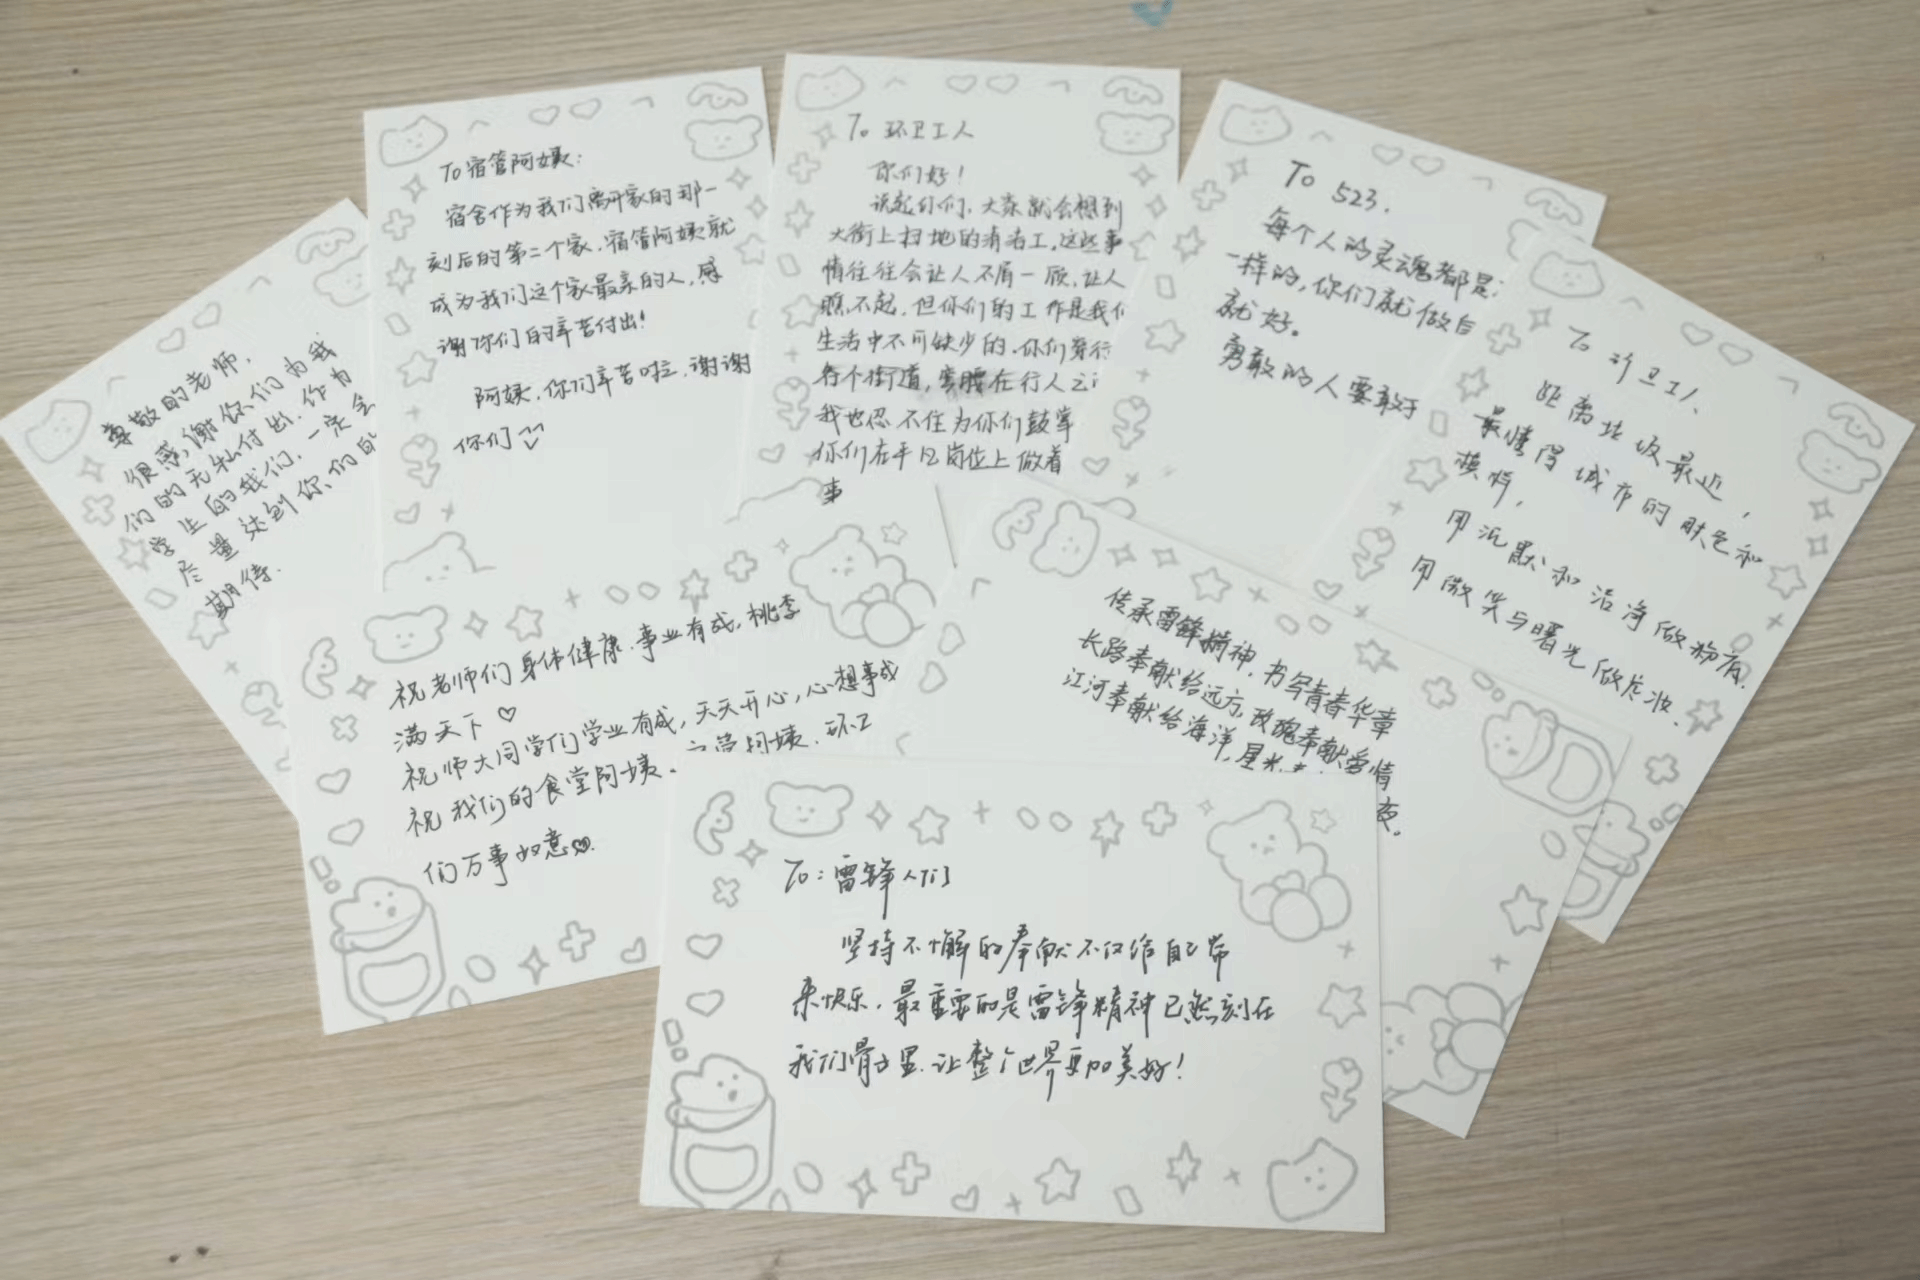 尊敬的老师,
很感谢你们为我
们的无私付出.作为
学生的我们.一定会
尽量达到你们的
期待.
To宿管阿姨:
宿舍作为我们离开家的那一
刻后的第二个家.宿管阿姨就
成为我们这个家最亲的人,感
谢你们的辛苦付出!
阿姨.你们辛苦啦.谢谢
你们
To 环卫工人
你们好!
说起你们,大家就会想到
大街上扫地的清洁工.这些事
情往往会让人不屑一顾.让人
瞧不起.但你们的工作是我们
生活中不可缺少的.你们穿行
各个街道,弯腰在行人之
我也忍不住为你们鼓掌
你们在平凡岗位上做着
事
To 523.
每个人的灵魂都是
一样的,你们就做自
就好。
勇敢的人要敢于
To 环卫工人、
距离垃圾最近,
最懂得城市的肤色和
模样,
用沉默和洁净做粉底.
用微笑与曙光做底妆.
祝老师们身体健康.事业有成,桃李
满天下♡
祝师大同学们学业有成,天天开心,心想事成
祝我们的食堂阿姨、宿管阿姨.环卫
们万事如意
传承雷锋精神,书写青春华章
长路奉献给远方,玫瑰奉献爱情
江河奉献给海洋,星光
夜。
To:雷锋人们
坚持不懈的奉献不仅给自己带
来快乐.最重要的是雷锋精神已然刻在
我们骨子里.让整个世界更加美好!